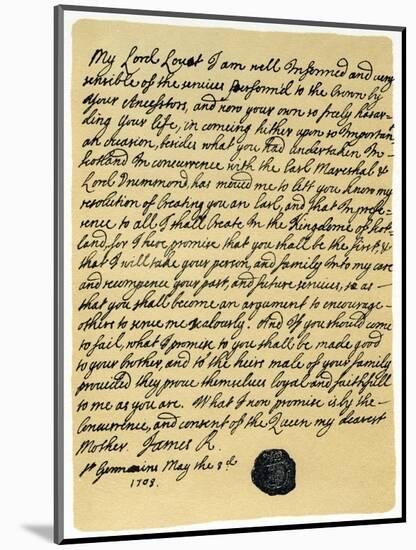 My Lord Lovat I am well Informed and very
sensible of the services perform'd to the Crown by
your Ancestors, and now your own so freely hasar-
ding your life, in comeing hither upon so Important
an ocasion, besides what you had undertaken In
Scotland In concurrence with the Earl Mareshal &
Lord Drummond, has moved me to lett you know my
resolution of Creating you an Earl, and that In prefe-
rence to all I shall Create In the Kingdome of Scot-
land, for I here promise that you shall be the first, &
that I will take your person, and family Into my care
and recompence your past, and future services, so as
that you shall become an argument to encourage
others to serve me zealously. And If you should come
to fail, what I promise to you shall be made good
to your brother, and to the heirs male of your family
provided they prove themselves loyal and faithfull
to me as you are. What I now promise is by the
Concurrence, and consent of the Queen my dearest
Mother. James R.
St Germains May the 3d
1703.